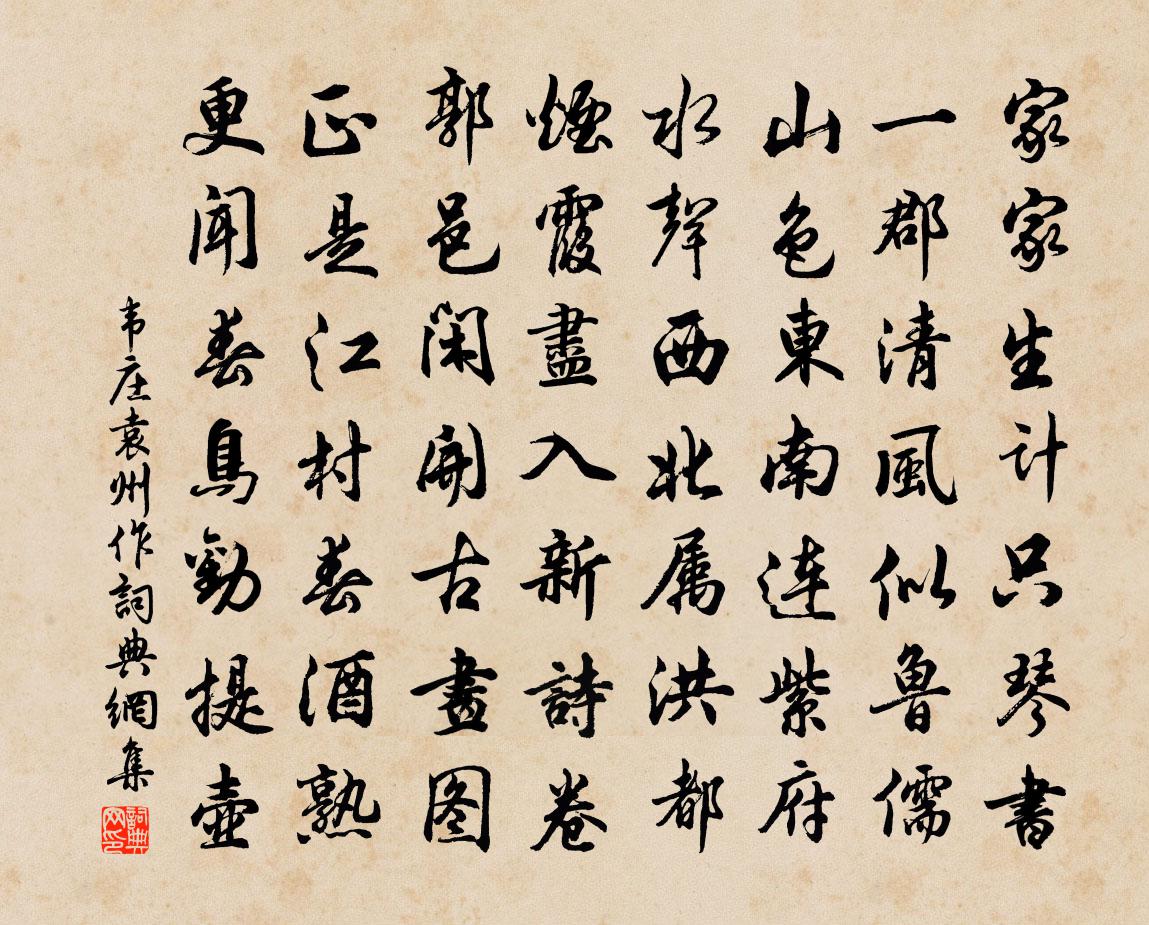 家家生計只琴書
一郡清風似魯儒
山色東南連紫府
水聲西北属洪都
煙霞盡入新詩卷
郭邑閑開古畫图
正是江村春酒熟
更聞春鳥勸提壺
韦庄袁州作詞典網集
詞典网印